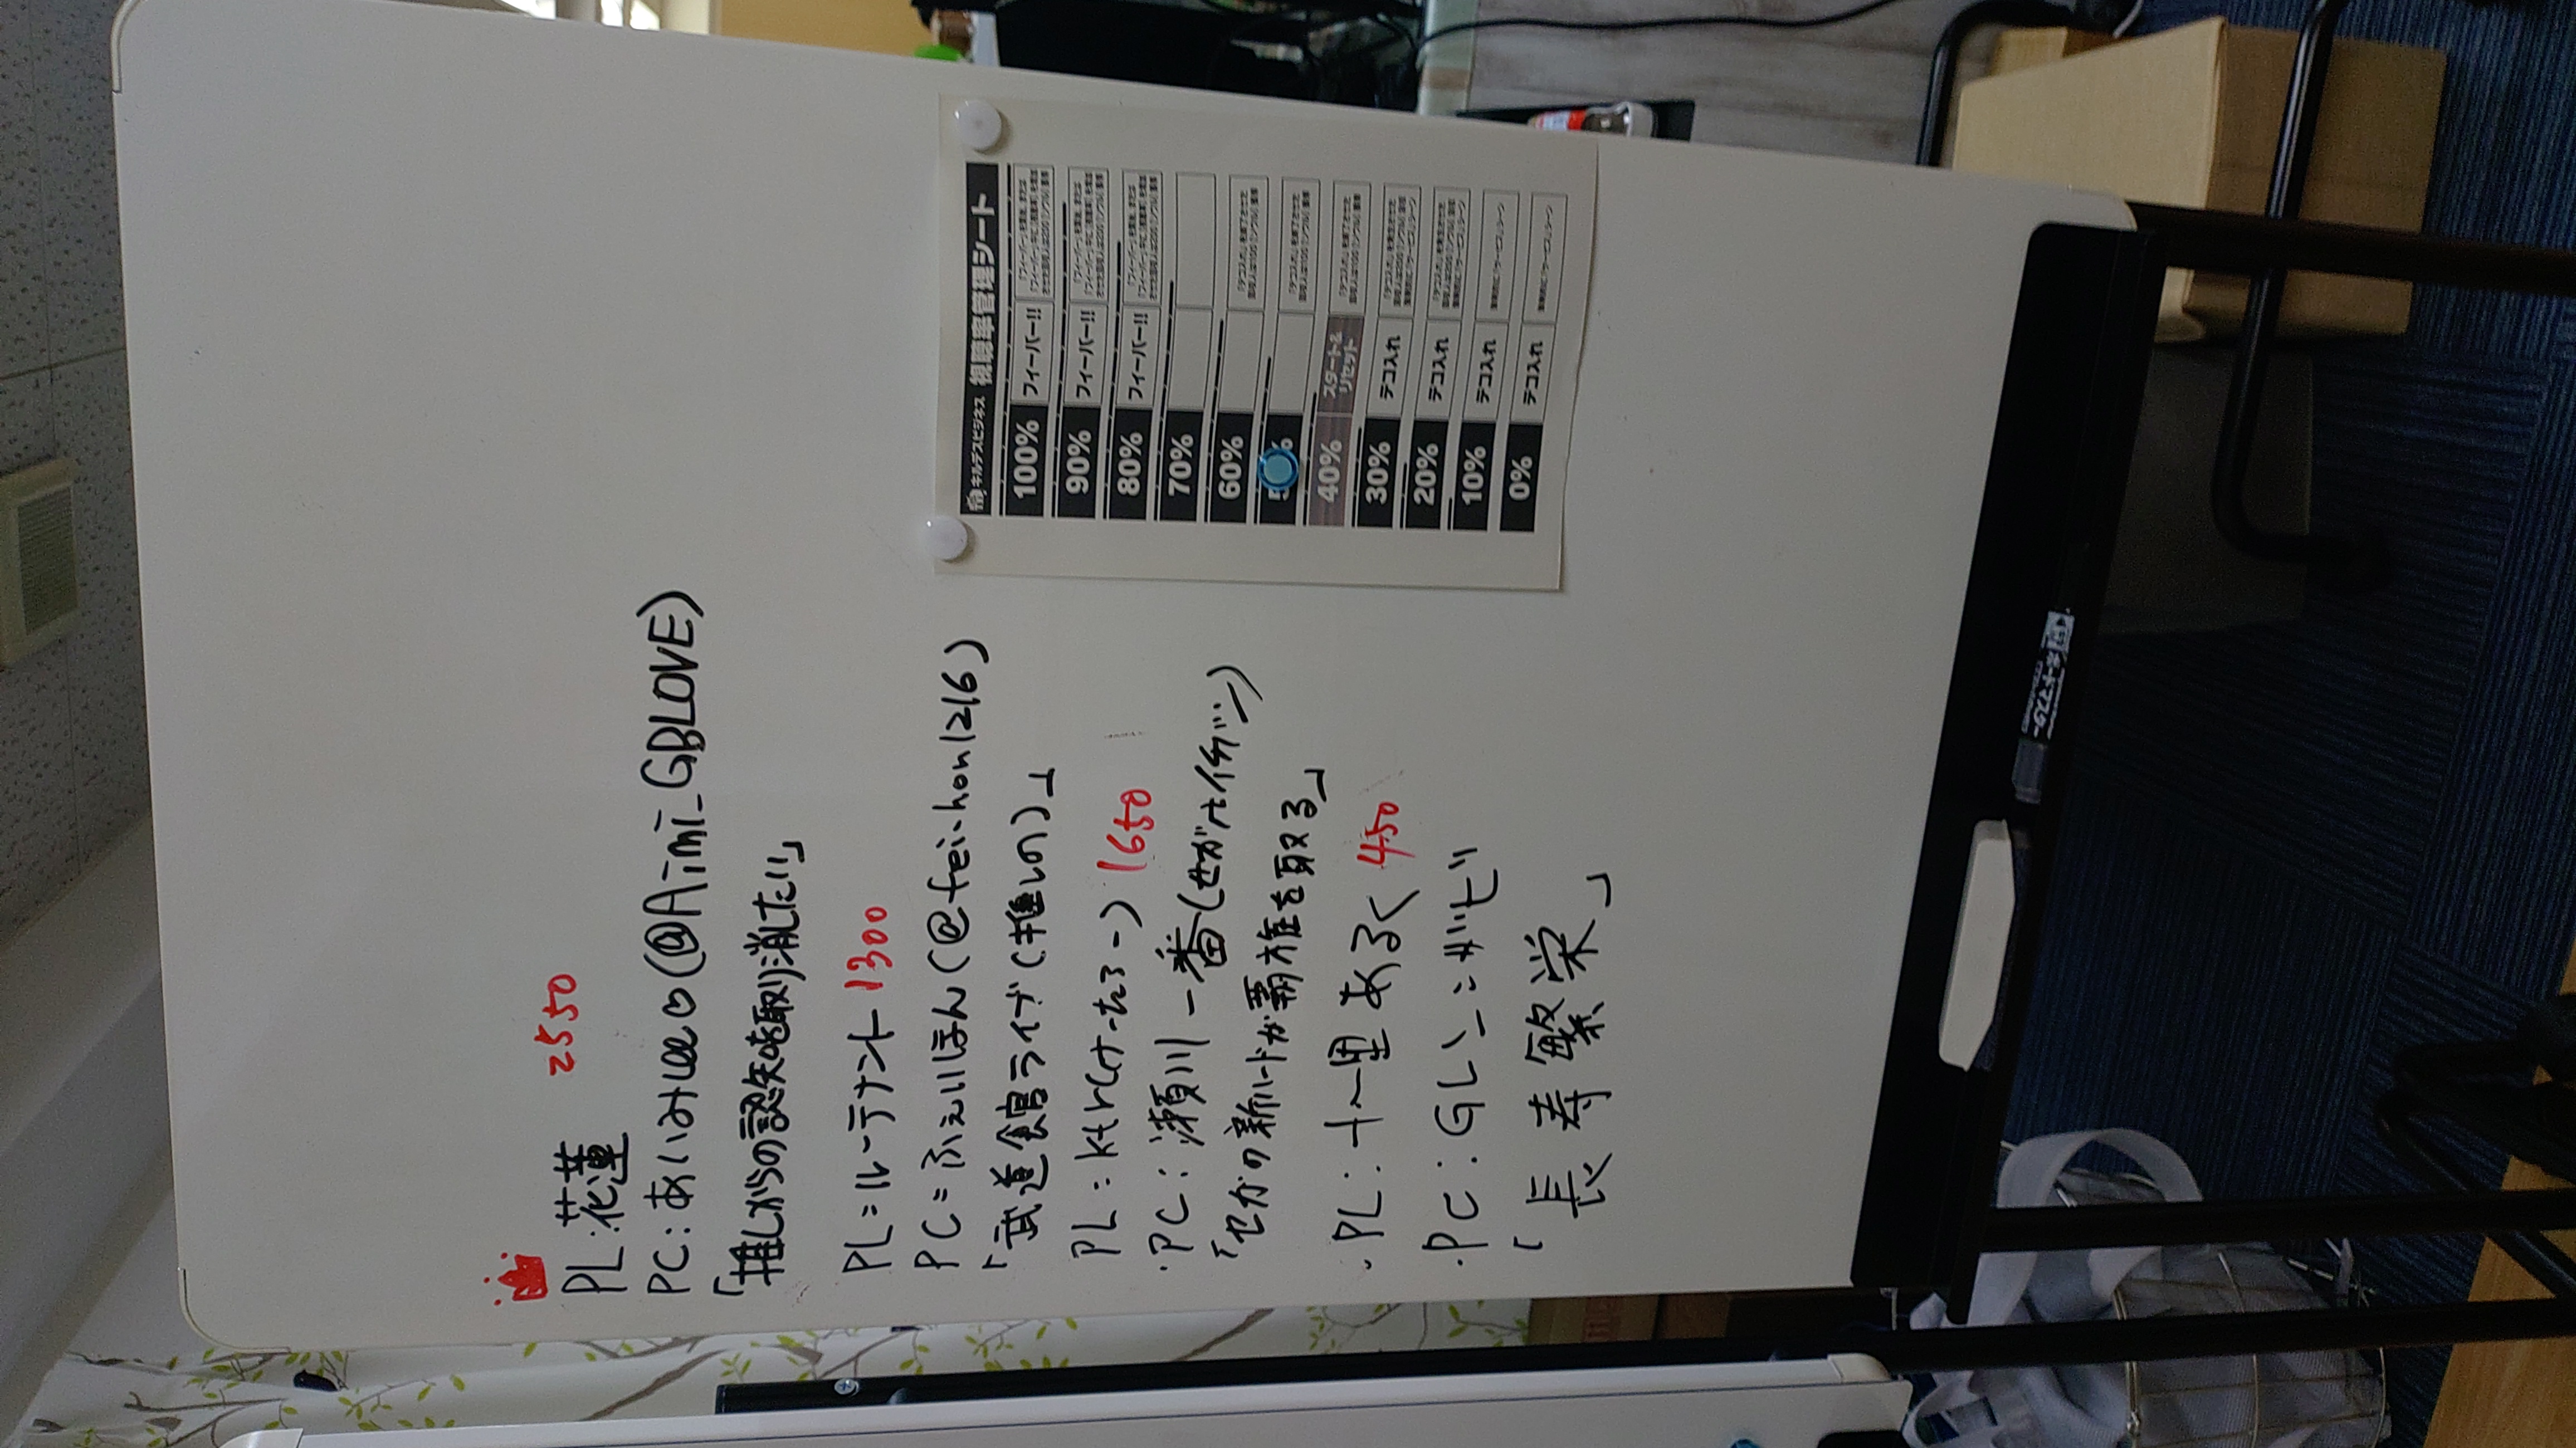 2550
PL:花蓮
PC:あいみ
(@Aimi_GBLOVE)
「推しからの認知を取り消したい」
PL=ルーテナント 1300
PC=ふぇいほん(@fei-hon1216)
「武道館ライブ(推しの)」
PL:ktr(けーたろー) 1650
・PC:瀬川一番(せがたイチバン)
「セガの新ハードが覇権を取る」
・PL:十里あるく 450
・PC:GLンンガヒ゛
「長寿繁栄」
キルデスビジネス 視聴率管理シート
100% フィーバー!!
90% フィーバー!!
80% フィーバー!!
70%
60%
40% スタート&リセット
30% テコ入れ
20% テコ入れ
10% テコ入れ
0% テコ入れ
ボードマスター